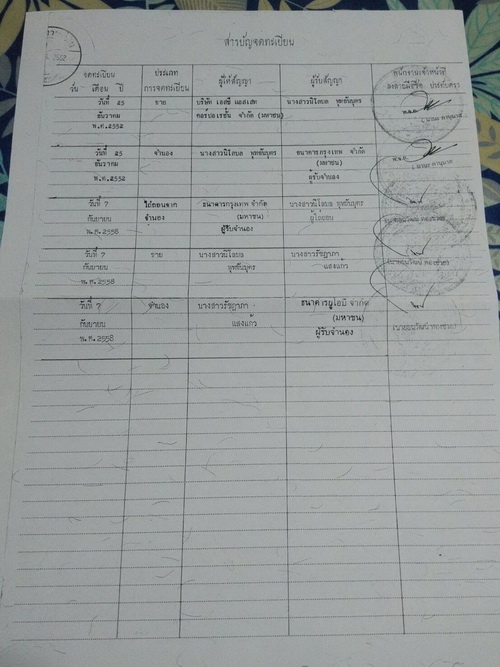 สารบัญจดทะเบียน
จดทะเบียน
วัน เดือน ปี
ประเภท
การจดทะเบียน
ผู้ให้สัญญา
ผู้รับสัญญา
พนักงานเจ้าหน้าที่
ลงลายมือชื่อ ประทับตรา
วันที่ 25
ธันวาคม
พ.ศ.2552
ขาย
บริษัท เอสซี แอสเสท
คอร์ปอเรชั่น จำกัด (มหาชน)
นางสาวนิโลบล
วันที่ 25
ธันวาคม
พ.ศ.2552
จำนอง
นางสาวนิโลบล
ธนาคารกรุงเทพ จำกัด
(มหาชน)
ผู้รับจำนอง
วันที่ 7
กันยายน
พ.ศ.2558
ไถ่ถอนจาก
จำนอง
ธนาคารกรุงเทพ จำกัด
(มหาชน)
ผู้รับจำนอง
นางสาวนิโลบล
ผู้ไถ่ถอน
วันที่ 7
กันยายน
พ.ศ.2558
ขาย
นางสาวนิโลบล
นางสาวรัชฎาภา
แสงแก้ว
วันที่ 7
กันยายน
พ.ศ.2558
จำนอง
นางสาวรัชฎาภา
แสงแก้ว
ธนาคารยูโอบี จำกัด
(มหาชน)
ผู้รับจำนอง